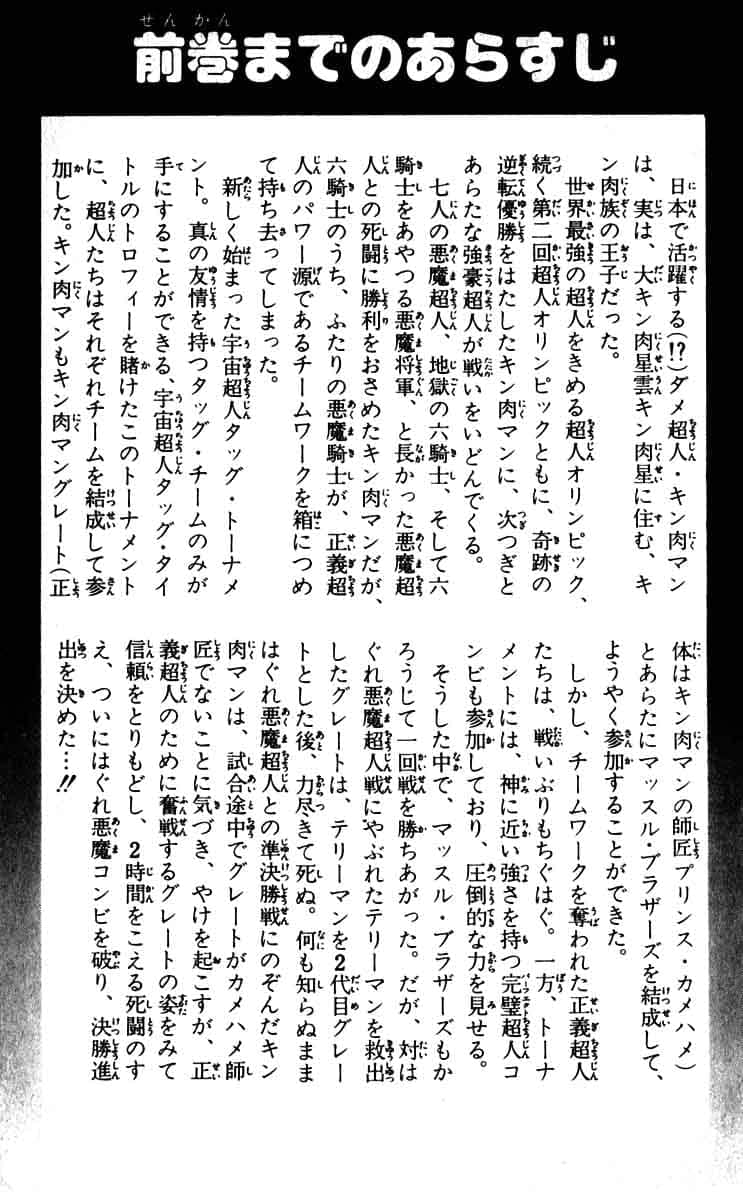 前巻までのあらすじ
日本で活躍する(!?)ダメ超人・キン肉マン
は、実は、大キン肉星雲キン肉星に住む、キ
ン肉族の王子だった。
世界最強の超人をきめる超人オリンピック、
続く第二回超人オリンピックともに、奇跡の
逆転優勝をはたしたキン肉マンに、次つぎと
あらたな強豪超人が戦いをいどんでくる。
七人の悪魔超人、地獄の六騎士、そして六
騎士をあやつる悪魔将軍、と長かった悪魔超
人との死闘に勝利をおさめたキン肉マンだが、
六騎士のうち、ふたりの悪魔騎士が、正義超
人のパワー源であるチームワークを箱につめ
て持ち去ってしまった。
新しく始まった宇宙超人タッグ・トーナメ
ント。真の友情を持つタッグ・チームのみが
手にすることができる、宇宙超人タッグ・タイ
トルのトロフィーを賭けたこのトーナメント
に、超人たちはそれぞれチームを結成して参
加した。キン肉マンもキン肉マングレート(正
体はキン肉マンの師匠プリンス・カメハメ)
とあらたにマッスル・ブラザーズを結成して、
ようやく参加することができた。
しかし、チームワークを奪われた正義超人
たちは、戦いぶりもちぐはぐ。一方、トーナ
メントには、神に近い強さを持つ完璧超人コ
ンビも参加しており、圧倒的な力を見せる。
そうした中で、マッスル・ブラザーズもか
ろうじて一回戦を勝ちあがった。だが、対は
ぐれ悪魔超人戦にやぶれたテリーマンを救出
したグレートは、テリーマンを2代目グレー
トとした後、力尽きて死ぬ。何も知らぬまま
はぐれ悪魔超人との準決勝戦にのぞんだキン
肉マンは、試合途中でグレートがカメハメ師
匠でないことに気づき、やけを起こすが、正
義超人のために奮戦するグレートの姿をみて
信頼をとりもどし、2時間をこえる死闘のす
え、ついにはぐれ悪魔コンビを破り、決勝進
出を決めた…!!